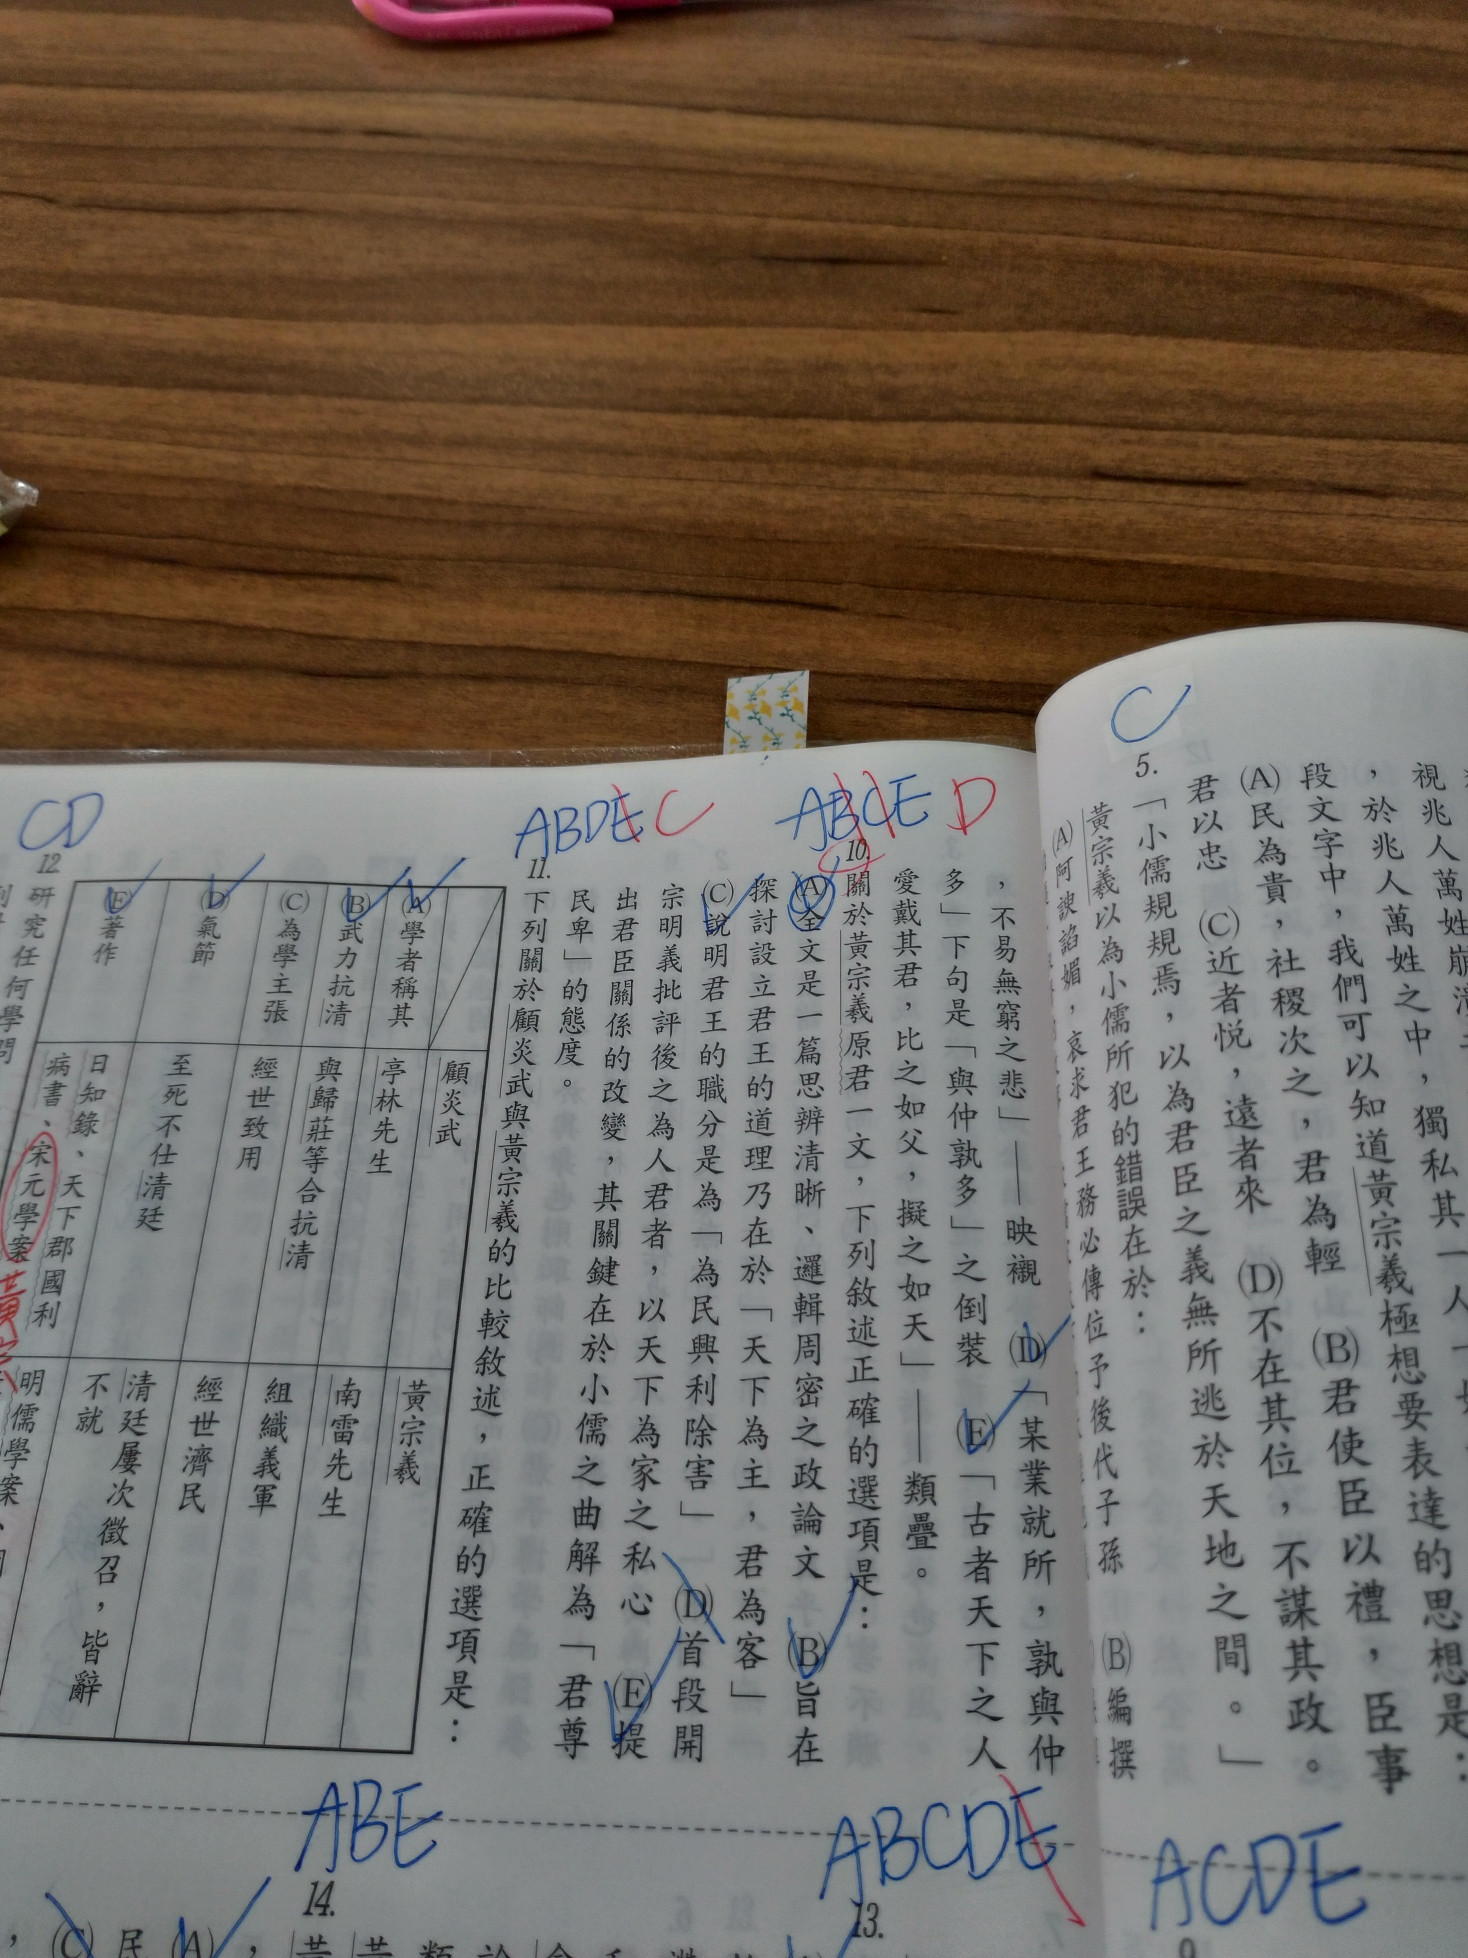 C
5.
視兆人萬姓崩潰
，於兆人萬姓之中，獨私其一人一姓
段文字中，我們可以知道黃宗羲極想要表達的思想是：
(A)民為貴，社稷次之，君為輕　(B)君使臣以禮，臣事
君以忠　(C)近者悅，遠者來　(D)不在其位，不謀其政。
「小儒規規焉，以為君臣之義無所逃於天地之間。」
黃宗羲以為小儒所犯的錯誤在於：
(A)阿諛諂媚，哀求君王務必傳位予後代子孫　(B)編撰
，不易無窮之悲」——映襯　(D)「某業就所，孰與仲
多」下句是「與仲孰多」之倒裝　(E)「古者天下之人
愛戴其君，比之如父，擬之如天」——類疊。
ABCE D
10.
關於黃宗羲原君一文，下列敘述正確的選項是：
(A)全文是一篇思辨清晰、邏輯周密之政論文　(B)旨在
探討設立君王的道理乃在於「天下為主，君為客」
(C)說明君王的職分是為「為民興利除害」　(D)首段開
宗明義批評後之為人君者，以天下為家之私心　(E)提
出君臣關係的改變，其關鍵在於小儒之曲解為「君尊
民卑」的態度。
ABDE C
11.
下列關於顧炎武與黃宗羲的比較敘述，正確的選項是：
顧炎武
黃宗羲
(A)學者稱其
亭林先生
南雷先生
(B)武力抗清
與歸莊等合抗清
組織義軍
(C)為學主張
經世致用
經世濟民
(D)氣節
至死不仕清廷
清廷屢次徵召，皆辭
不就
(E)著作
日知錄、天下郡國利
病書、宋元學案
明儒學案、
CD
12.
研究任何學問
ACDE
9
ABCDE
13.
ABE
14.